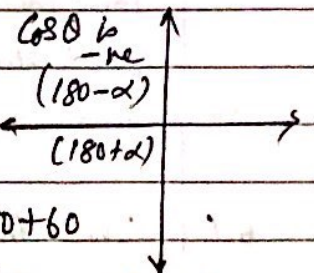 Cosθ is
-ve
(180-α)
(180+α)
0+60